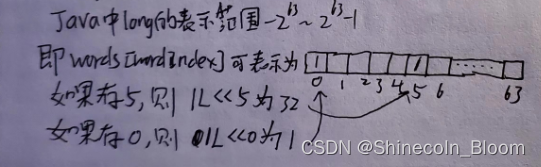 Java中long的表示范围-2^63~2^63-1
即words[wordIndex]可表示为 1 1
0 1 2 3 4 5 6 ...... 63
如果存5,则 1L<<5为32
如果存0,则 1L<<0为1
CSDN @Shinecoln_Bloom